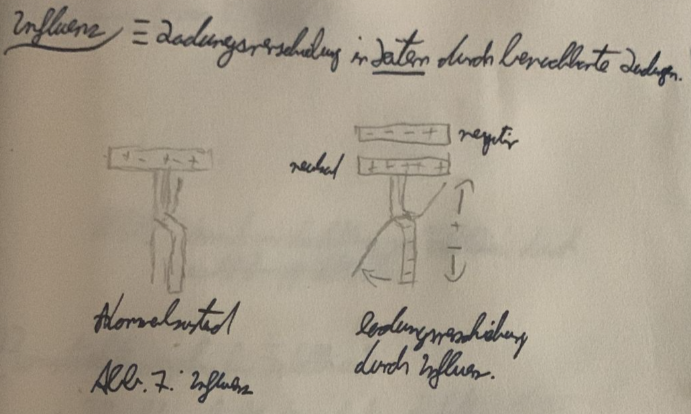 Influenz ≡ Ladungsverschiebung in Leitern durch benachbarte Ladungen.
- - - + negativ
+ - + - + neutral + - + + +
+
-
Normalzustand Ladungsverschiebung
durch Influenz.
Abb. 7: Influenz